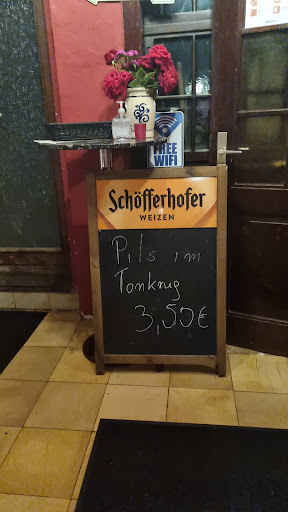 FREE
WIFI
Schöfferhofer
WEIZEN
Pils im
Tonkrug
3,50€